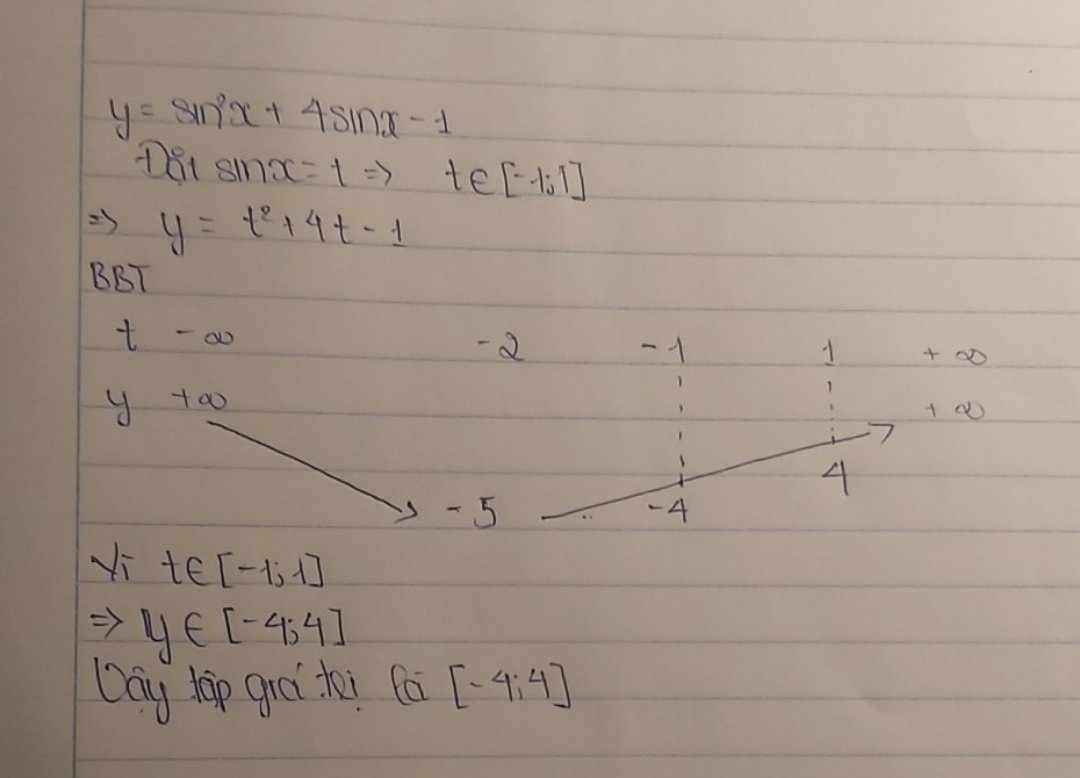 y = sin²x + 4sinx - 1
Đặt sinx = t => t ∈ [-1;1]
=> y = t² + 4t - 1
BBT
t -∞ -2 -1 1 +∞
y +∞ +∞
4
-5 -4
Vì t ∈ [-1;1]
=> y ∈ [-4;4]
Vậy tập giá trị là [-4;4]